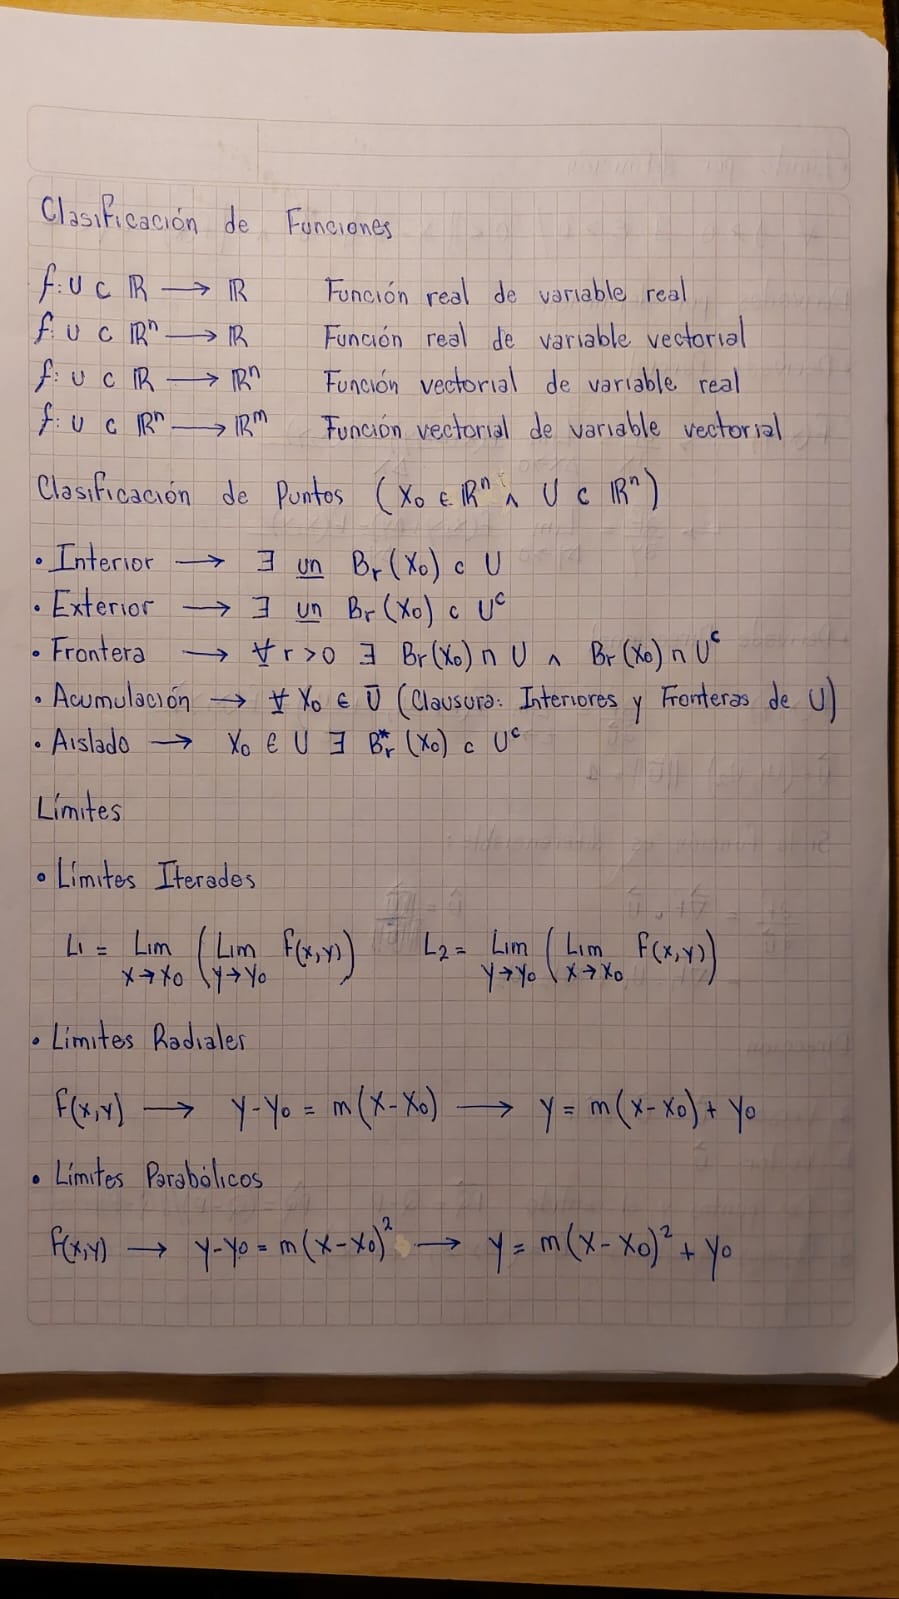 Clasificación de Funciones
f: U ⊂ ℝ → ℝ Función real de variable real
f: U ⊂ ℝⁿ → ℝ Función real de variable vectorial
f: U ⊂ ℝ → ℝⁿ Función vectorial de variable real
f: U ⊂ ℝⁿ → ℝᵐ Función vectorial de variable vectorial
Clasificación de Puntos (X₀ ∈ ℝⁿ ∧ U ⊂ ℝⁿ)
• Interior → ∃ un Br(X₀) ⊂ U
• Exterior → ∃ un Br(X₀) ⊂ Uᶜ
• Frontera → ∀ r > 0 ∃ Br(X₀) ∩ U ∧ Br(X₀) ∩ Uᶜ
• Acumulación → ∀ X₀ ∈ Ū (Clausura: Interiores y Fronteras de U)
• Aislado → X₀ ∈ U ∃ B*r (X₀) ⊂ Uᶜ
Límites
• Límites Iterados
L₁ = Lim (Lim f(x,y)) L₂ = Lim (Lim f(x,y))
x→x₀ y→y₀ y→y₀ x→x₀
• Límites Radiales
f(x,y) → y-y₀ = m(x-x₀) → y = m(x-x₀) + y₀
• Límites Parabólicos
f(x,y) → y-y₀ = m(x-x₀)² → y = m(x-x₀)² + y₀